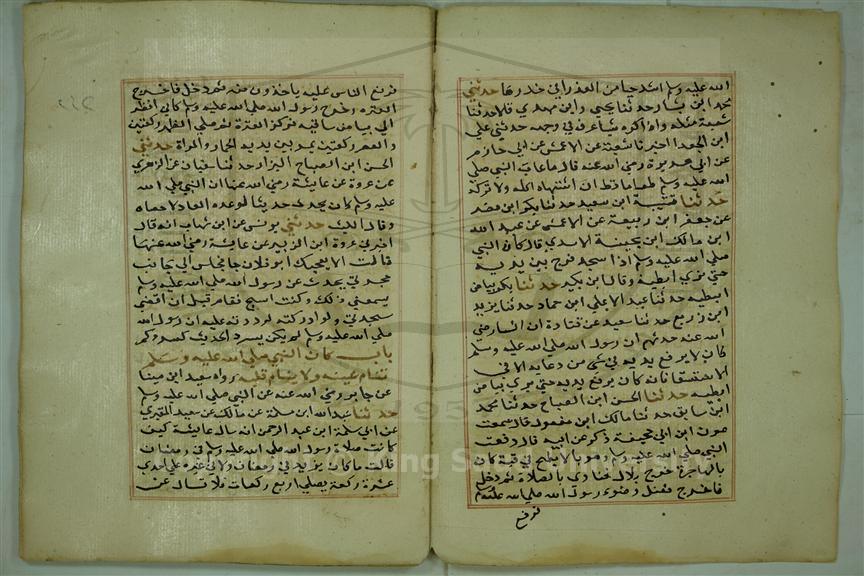 الله عليه وسلم اشد حيا من العذرا في خدرها حدثني
محمد ابن بشار حدثنا يحيى وابن مهدي قالا حدثنا
شعبة مثله واذا كره شيا عرف في وجهه حدثني علي
ابن الجعد اخبرنا شعبة عن الاعمش عن ابي حازم
عن ابي هريرة رضي الله عنه قال ما عاب النبي صلى
الله عليه وسلم طعاما قط ان اشتهاه اكله والا تركه
حدثنا قتيبة ابن سعيد حدثنا بكر ابن مضر
عن جعفر ابن ربيعة عن الاعرج عن عبد الله
ابن مالك ابن بحينة الاسدي قال كان النبي
صلى الله عليه وسلم اذا سجد فرج بين يديه
حتى نري ابطيه وقال ابن بكير حدثنا بكر بياض
ابطيه حدثنا عبد الاعلى ابن حماد حدثنا يزيد
ابن زريع حدثنا سعيد عن قتادة ان انسا رضي
الله عنه حدثهم ان رسول الله صلى الله عليه وسلم
كان لا يرفع يديه في شي من دعايه الا في
الاستسقا فانه كان يرفع يديه حتى يري بياض
ابطيه حدثنا الحسن ابن الصباح حدثنا محمد
ابن سابق حدثنا مالك ابن مغول قال سمعت
عون ابن ابي جحيفة ذكر عن ابيه قال دفعت
النبي صلى الله عليه وسلم وهو بالابطح في قبة كان
بالهاجرة خرج بلال فنادي بالصلاة ثم دخل
فاخرج فضل وضوء رسول الله صلى الله عليه وسلم
فوقع
فوقع الناس عليه ياخذون منه ثم دخل فاخرج
العنزة وخرج رسول الله صلى الله عليه وسلم كاني انظر
الي بياض ساقيه فركز العنزة ثم صلي الظهر ركعتين
والعصر ركعتين يمر بين يديه الحمار والمراة حدثني
الحسن ابن الصباح البزار حدثنا سفيان عن الزهري
عن عروة عن عايشة رضي الله عنها ان النبي صلى الله
عليه وسلم كان يحدث حديثا لو عده العاد لاحصاه
وقال الليث حدثني يونس عن ابن شهاب انه قال
اخبرني عروة ابن الزبير عن عايشة رضي الله عنها
قالت الا يعجبك ابو فلان جا فجلس الي جانب
حجرتي يحدث عن رسول الله صلى الله عليه وسلم
يسمعني ذلك وكنت اسبح فقام قبل ان اقضي
سبحتي ولو ادركته لرددت عليه ان رسول الله
صلى الله عليه وسلم لم يكن يسرد الحديث كسردكم
باب كان النبي صلى الله عليه وسلم
تنام عينه ولا ينام قلبه رواه سعيد ابن مينا
عن جابر رضي الله عنه عن النبي صلى الله عليه وسلم
حدثنا عبد الله ابن مسلمة عن مالك عن سعيد المقبري
عن ابي سلمة ابن عبد الرحمن انه سال عايشة كيف
كانت صلاة رسول الله صلى الله عليه وسلم في رمضان
قالت ما كان يزيد في رمضان ولا في غيره علي احدي
عشرة ركعة يصلي اربع ركعات فلا تسال عن